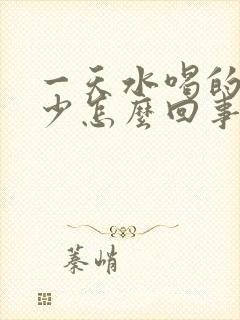 一天水喝的
少怎麼回事
蓁峭